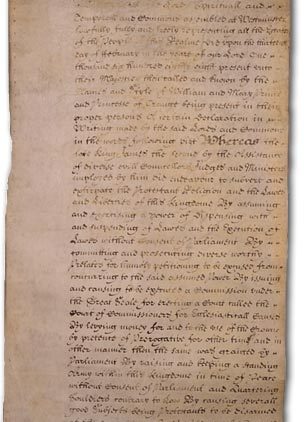 Lords Spirituall and
Temporall and Commons assembled at Westminster
lawfully fully and freely representing all the Estates
of the People of this Realme did upon the thirteenth day
of February in the yeare of our Lord One
thousand six hundred eighty eight present unto
their Majesties then called and known by the
Names and Stile of William and Mary Prince
and Princesse of Orange being present in their
proper Persons A certain Declaration in
Writing made by the said Lords and Commons
in the words following viz Whereas the
late King James the second by the Assistance
of diverse evill Councellors Judges and Ministers
imployed by him did endeavour to subvert and
extirpate the Protestant Religion and the Lawes
and Liberties of this Kingdome By assuming
and exercising a power of Dispensing with
and suspending of Lawes and the Execution of
Lawes without Consent of Parliament By
committing and prosecuting diverse worthy
Prelates for humbly petitioning to be excused from
concurring to the said assumed Power By issuing
and causing to be executed a Commission under
the Great Seale for erecting a Court called the
Court of Commissioners for Ecclesiasticall Causes
By levying money for and to the use of the Crowne
by pretence of Prerogative for other time and in
other manner then the same was granted by
Parliament By raising and keeping a Standing
Army within this Kingdome in time of Peace
without Consent of Parliament and Quartering
Souldiers contrary to Law By causing severall
good Subjects being Protestants to be disarmed